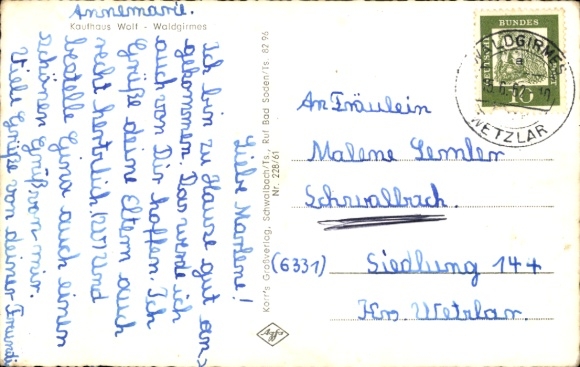 Liebe Marlene!
Ich bin zu Hause gut an=
gekommen. Das werde ich
auch von Dir hoffen. Ich
Grüße deine Eltern auch
recht herzlich. Und
bestelle Gina auch einen
schönen Gruß von mir.
Viele Grüße von deiner Freundin
Annemarie.
Kaufhaus Wolf - Waldgirmes
Karr's Großverlag, Schwalbach/Ts., Ruf Bad Soden/Ts. 82 96
Nr. 228/61
Agfa
DEUTSCHE BUNDES
15
WALDGIRMES
WETZLAR
An Fräulein
Malene Semler
Schwalbach.
(6331) Siedlung 14
Krs. Wetzlar.